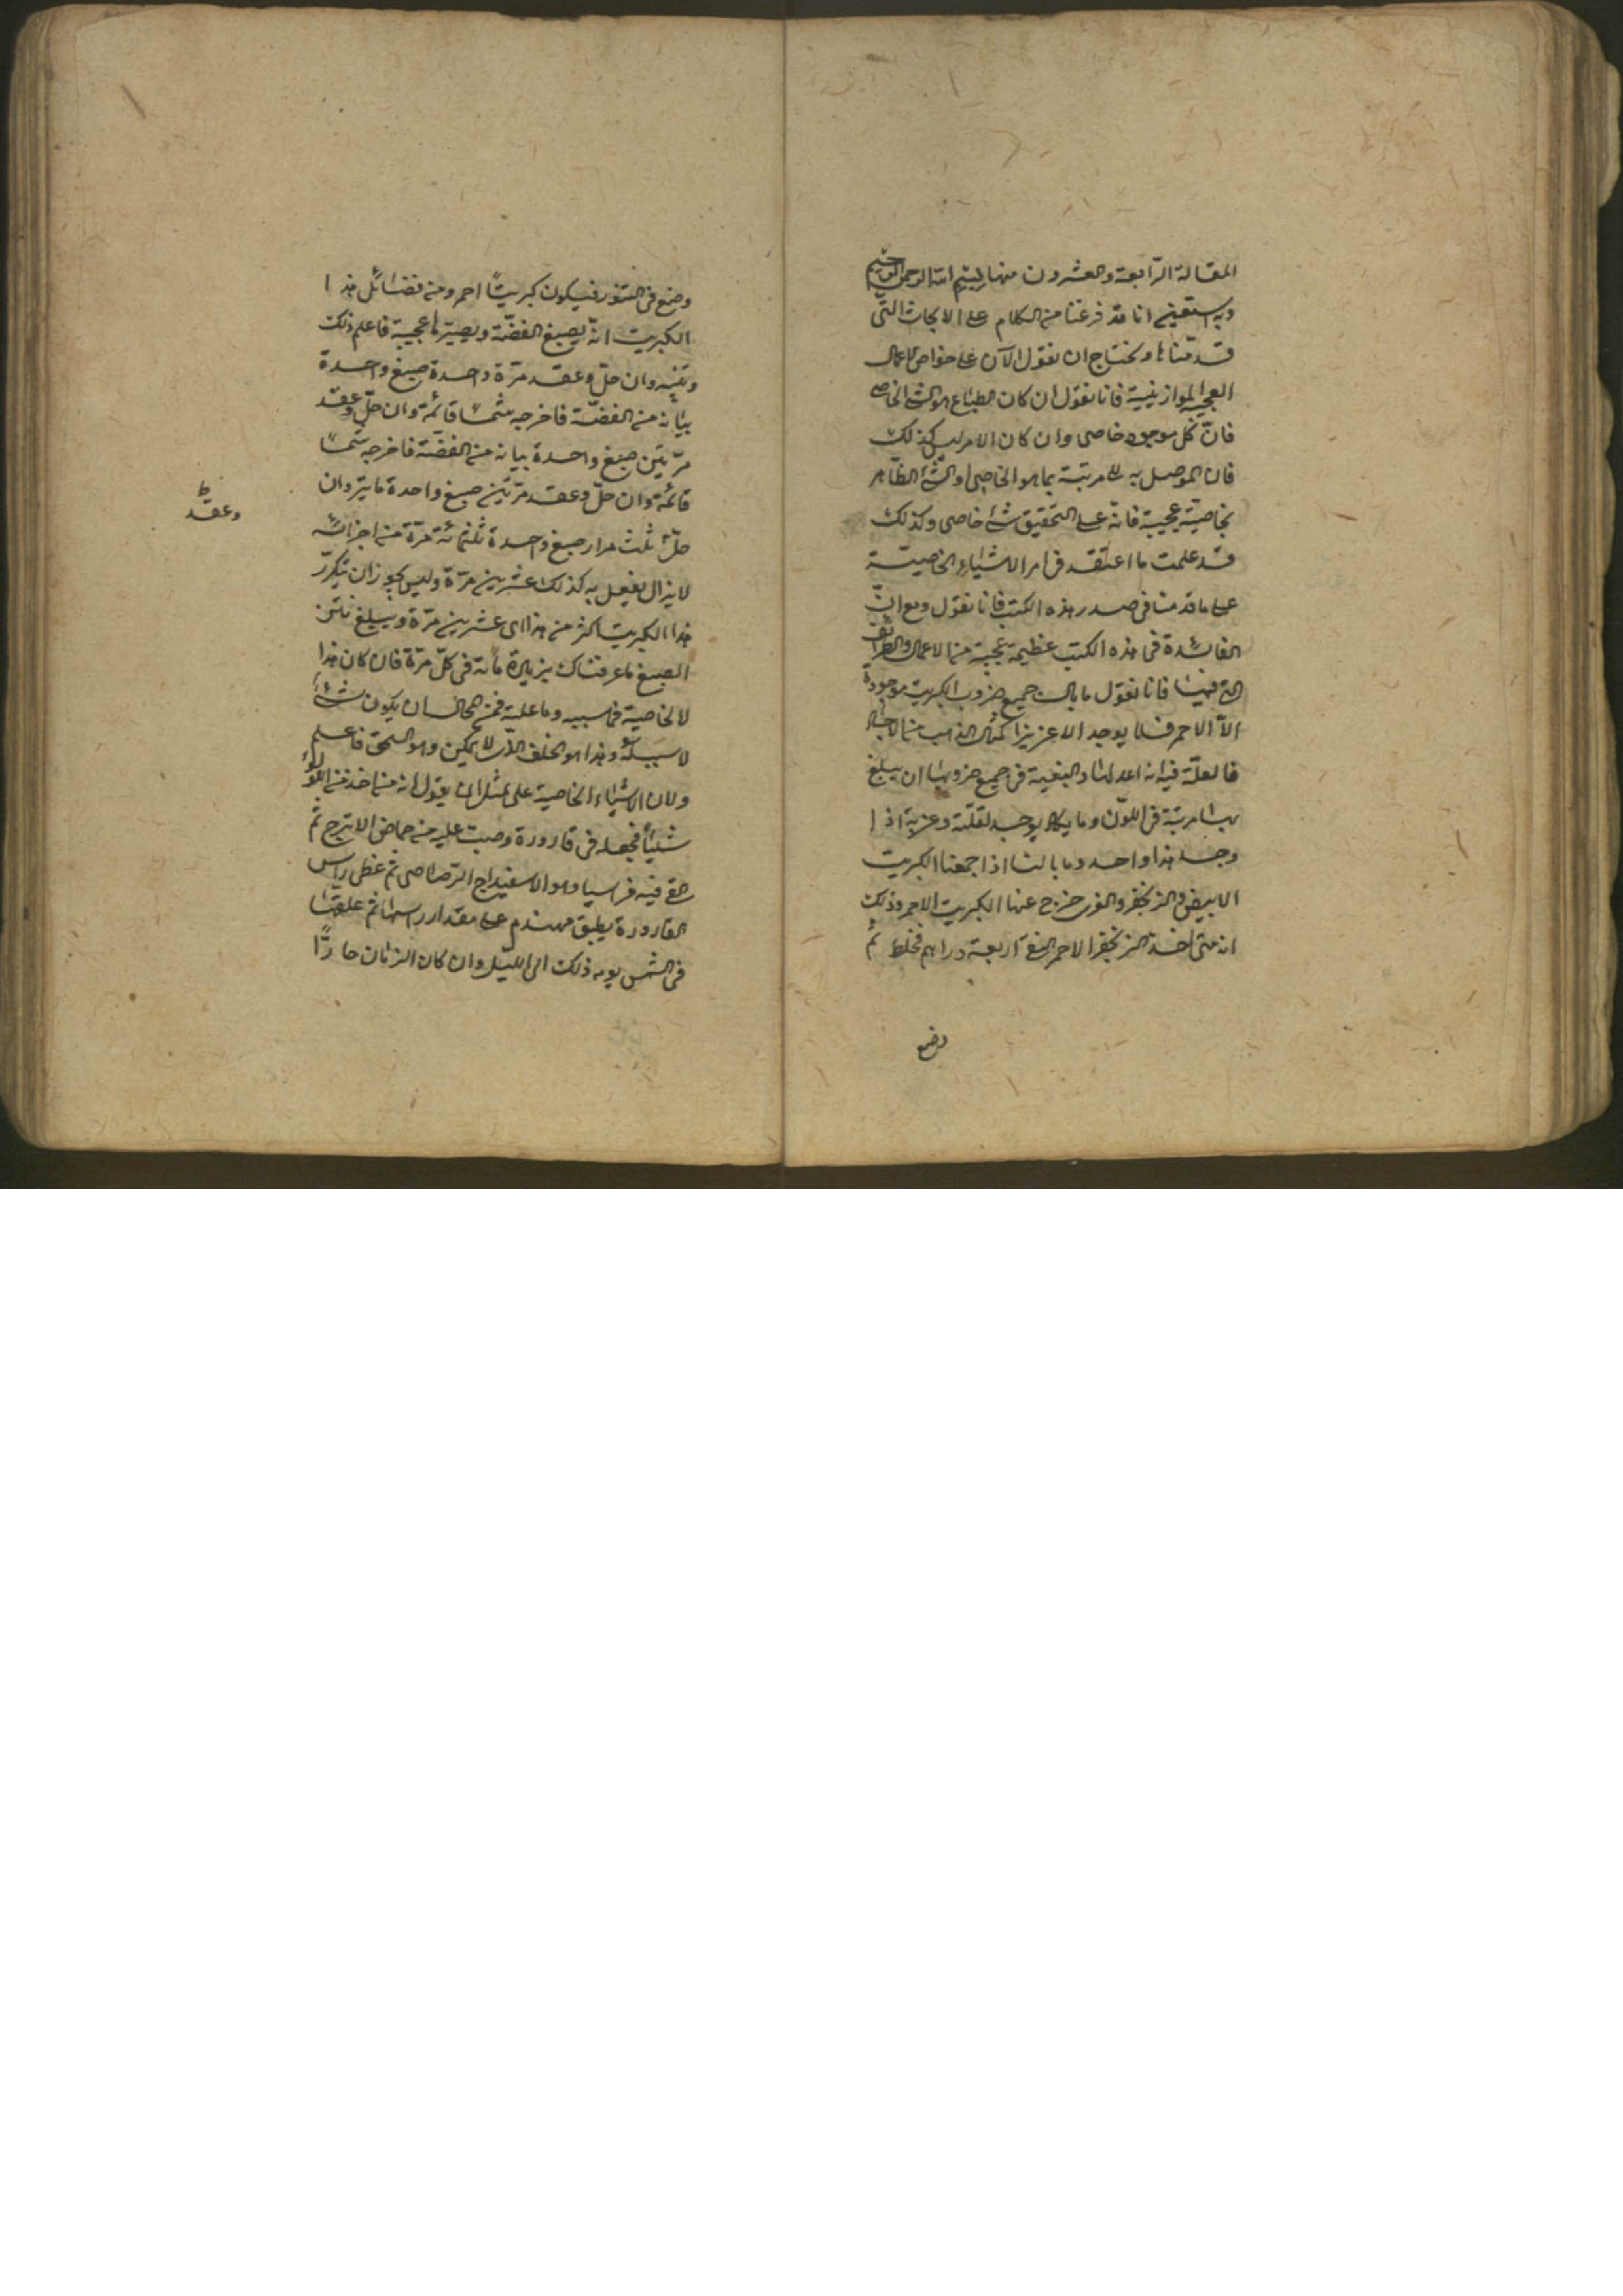 المقالة الرّابعة والعشرون منها بسم الله الرحمن الرحيم
وبه نستعين انا قد فرغنا من الكلام على الابحاث التى
قدمناها ونحتاج ان نقول الآن على خواص الاعمال
العجيبة الموازينية فانا نقول ان كان الطباع هو الشئ الخاصى
فانّ كل موجود خاصى وان كان الامر ليس كذلك
فان الموصل به الى مرتبة بما هو الخاصى او الشئ الظاهر
بخاصية عجيبة فانه على التحقيق شئ خاصى وكذلك
قد علمت ما اعتقد فى امر الاشياء الخاصيّة
على ما قدمنا فى صدر هذه الكتب فانا نقول ومع انّ
الفائدة فى هذه الكتب عظيمة عجيبة من الاعمال والطرائف
التى فيها فانا نقول ما بال جميع ضروب الكبريت موجودة
الاّ الاحمر فلا يوجد الا عزيزا كمثال الذهب من الاحجار
فالعلّة فيه انه اعدلها والبغية فى جميع ضروبها ان يبلغ
بها مرتبة فى اللّون وما يكاد يوجد لقلّته وعزته اذا
وجد هذا واحد وما بالنا اذا جمعنا الكبريت
الابيض والزنجفر والنورة خرج عنها الكبريت الاحمر وذلك
انه متى اخذ الزنجفر الاحمر النقى اربعة دراهم فخلط ثم
وضع
وضع فى التنور فيكون كبريتًا احمر ومن فضائل هذا
الكبريت انّه يصبغ الفضّة ويصيّرها عجيبة فاعلم ذلك
وتبينه وان حلّ وعقد مرّة واحدة صبغ واحدة
بيانه من الفضّة فاخرجه شمسا قائمة وان حلّ وعقد
مرّتين صبغ واحدة بيانه من الفضّة فاخرجه شمسًا
قائمة وان حلّ وعقد مرّتين صبغ واحدة مايتر وان
حلّ ثلث مرار صبغ واحدة ثلثمائة مرّة من اجزائه
وعقد
لا يزال يفعل به كذلك عشرين مرّة وليس يجوز ان يتكرّر
هذا الكبريت اكثر من هذا اى عشرين مرّة ويبلغ من
الصبغ ما عرفناك بزيادة مائة فى كلّ مرّة فان كان هذا
لا لخاصية فما سببه وما علته فمن المحال ان يكون شئ
لا سبب له وهذا هو الخلف الذى لا يمكن وهو الحق فاعلم
ولان الاشياء الخاصية على مثل ان يقول انه متى اخذ من اللؤلؤ
شيئًا فجعله فى قارورة وصبّ عليه من حماض الاترج ثم
القى فيه فراسيا وهو الاسفيداج الرّصاصى ثم غطى راس
القارورة بطبق مهندم على مقدار راسها ثم علقها
فى الشمس يومه ذلك الى الليل وان كان الزمان حارًّا